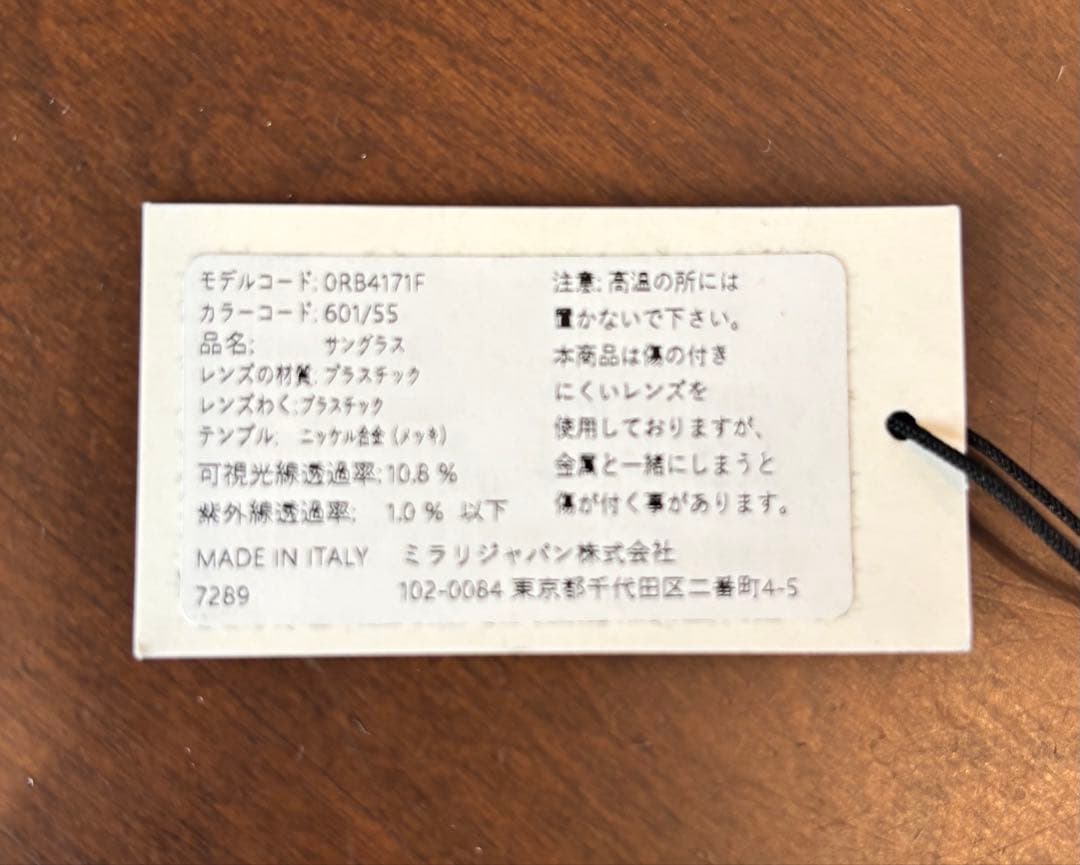 モデルコード: 0RB4171F
カラーコード: 601/55
品名: サングラス
レンズの材質: プラスチック
レンズわく: プラスチック
テンプル: ニッケル合金(メッキ)
可視光線透過率: 10.8 %
紫外線透過率: 1.0 % 以下
MADE IN ITALY ミラリジャパン株式会社
7289 102-0084 東京都千代田区二番町4-5
注意: 高温の所には
置かないで下さい。
本商品は傷の付き
にくいレンズを
使用しておりますが、
金属と一緒にしまうと
傷が付く事があります。